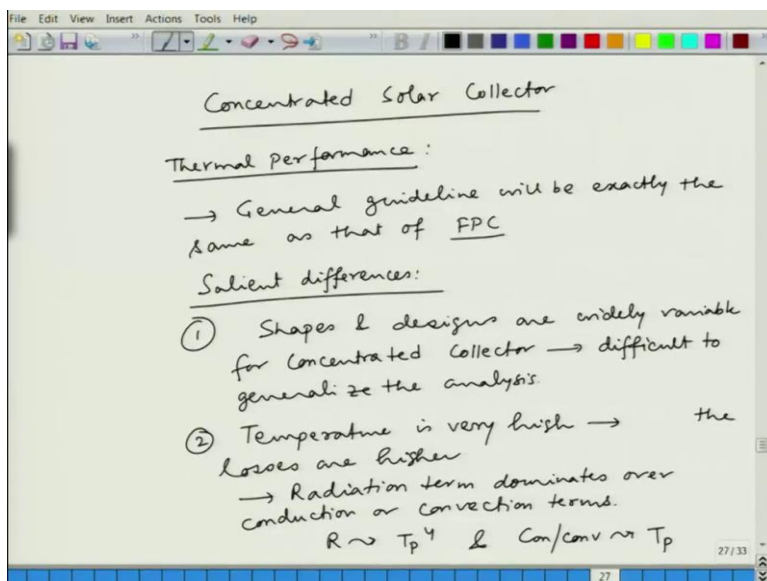 File Edit View Insert Actions Tools Help
Concentrated Solar Collector
Thermal Performance:
→ General guideline will be exactly the
same as that of FPC
Salient differences:
① Shapes & designs are widely variable
for Concentrated Collector → difficult to
generalize the analysis.
② Temperature is very high → the
losses are higher
→ Radiation term dominates over
conduction or convection terms.
R ~ Tp⁴ & Con/conv ~ Tp
27/33
27